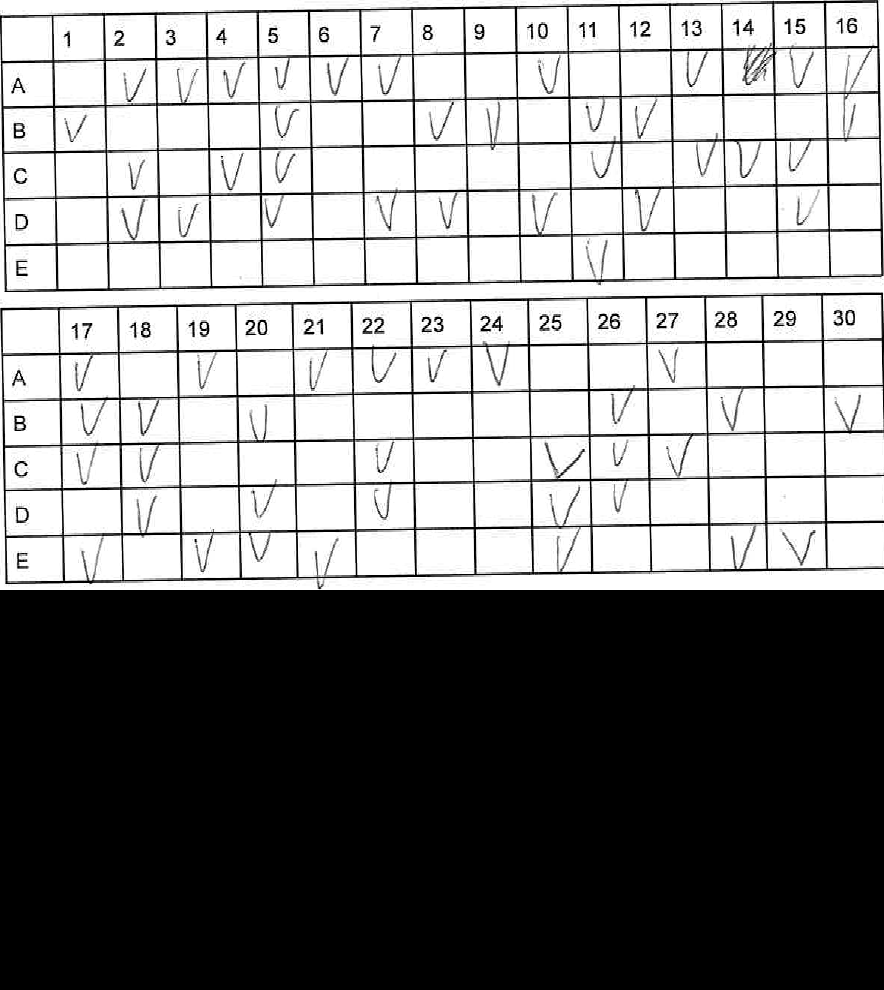 1 2 3 4 5 6 7 8 9 10 11 12 13 14 15 16
A V V V V V V V V V V
B V V V V V V V
C V V V V V V V
D V V V V V V V V
E V
17 18 19 20 21 22 23 24 25 26 27 28 29 30
A V V V V V V V
B V V V V V V
C V V V V V V
D V V V V V
E V V V V V V V